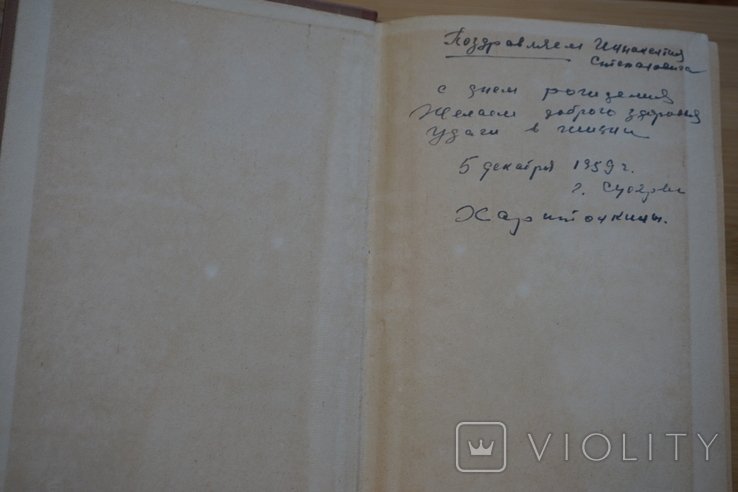 Поздравляем Иннокентия
Степановича
с днем рождения
Желаем доброго здоровия
удачи в жизни
5 декабря 1959 г.
г.
Харитонкины.
VIOLITY